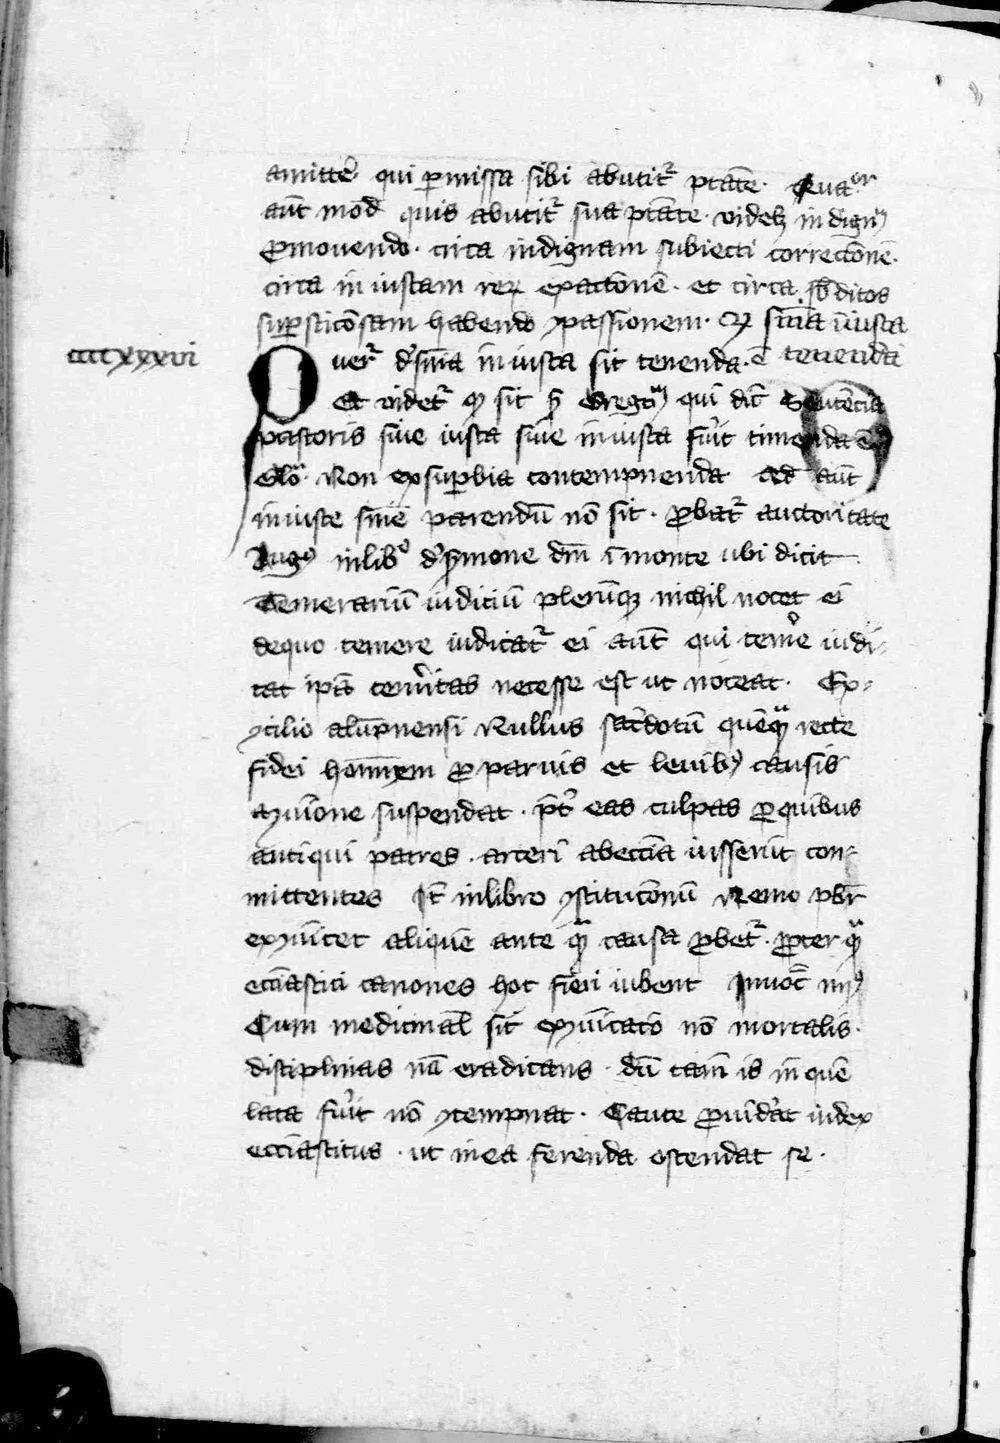 amitte᷑ qui ꝑmissa sibi abutit᷑ ptāte. Quaor
aūt mod̄ quis abutit᷑ sua ptāte. videlꝫ in dignꝰ
ꝓmovendo. circa indignam subiecti correctōnē.
circa in iustam reꝝ exactōnē. et circa sb̄ditos
suꝑsticōsam habendo ꝯpassionem. Ꝙ snīa īiusta
ē tenenda
ccccxxxvi
Quer᷑ d᷑ snīa iniusta sit tenenda.
Et videt᷑ ꝙ sit Gregoꝰ qui dīc Sentēcia
pastoris siue iusta siue iniusta fūit timenda ē
Glo᷑. Non ex suꝑbia contempnenda Ad aūt
iniuste snīe parendū nō sit. ꝓbat᷑ auctoritate
Augꝰ in libº d᷑ sermone dnī ī monte ubi dicit
Temerariū iudiciū plerūqꝫ nichil nocet ei
dequo temere iudicat᷑ ei aūt qui teme᷑ iudi-
cat ipā tem᷑itas necesse est ut noceat. Ex
ꝯcilio alūpnensi Nullus sac᷑dotū quēqᷓ recte
fidei hominem ꝓ paruis et leuibꝰ causis
ꝯmūione suspendat. p̄t᷑ eas culpas ꝓ quibus
antiqui patres. arceri ab ecc̄ia iusserūt con-
mittentes Jt̄ in libro ꝯstitucōnū Nemo pb̄r
exꝯmūicet aliquē ante qᷓ causa ꝓbet᷑. ꝓpter qᷓ
ecc̄iastici canones hoc fieri iubent Jnnoc̄ iiijꝰ
Cum medicinal̄ sit exꝯmūicatō nō mortalis.
disciplinas nō eradicans. dū tam̄ is in quē
lata fu᷑it nō ꝯtempnat. Caute ꝓuid᷑at iudex
ecc̄iasticus. ut in ea ferenda ostendat se.